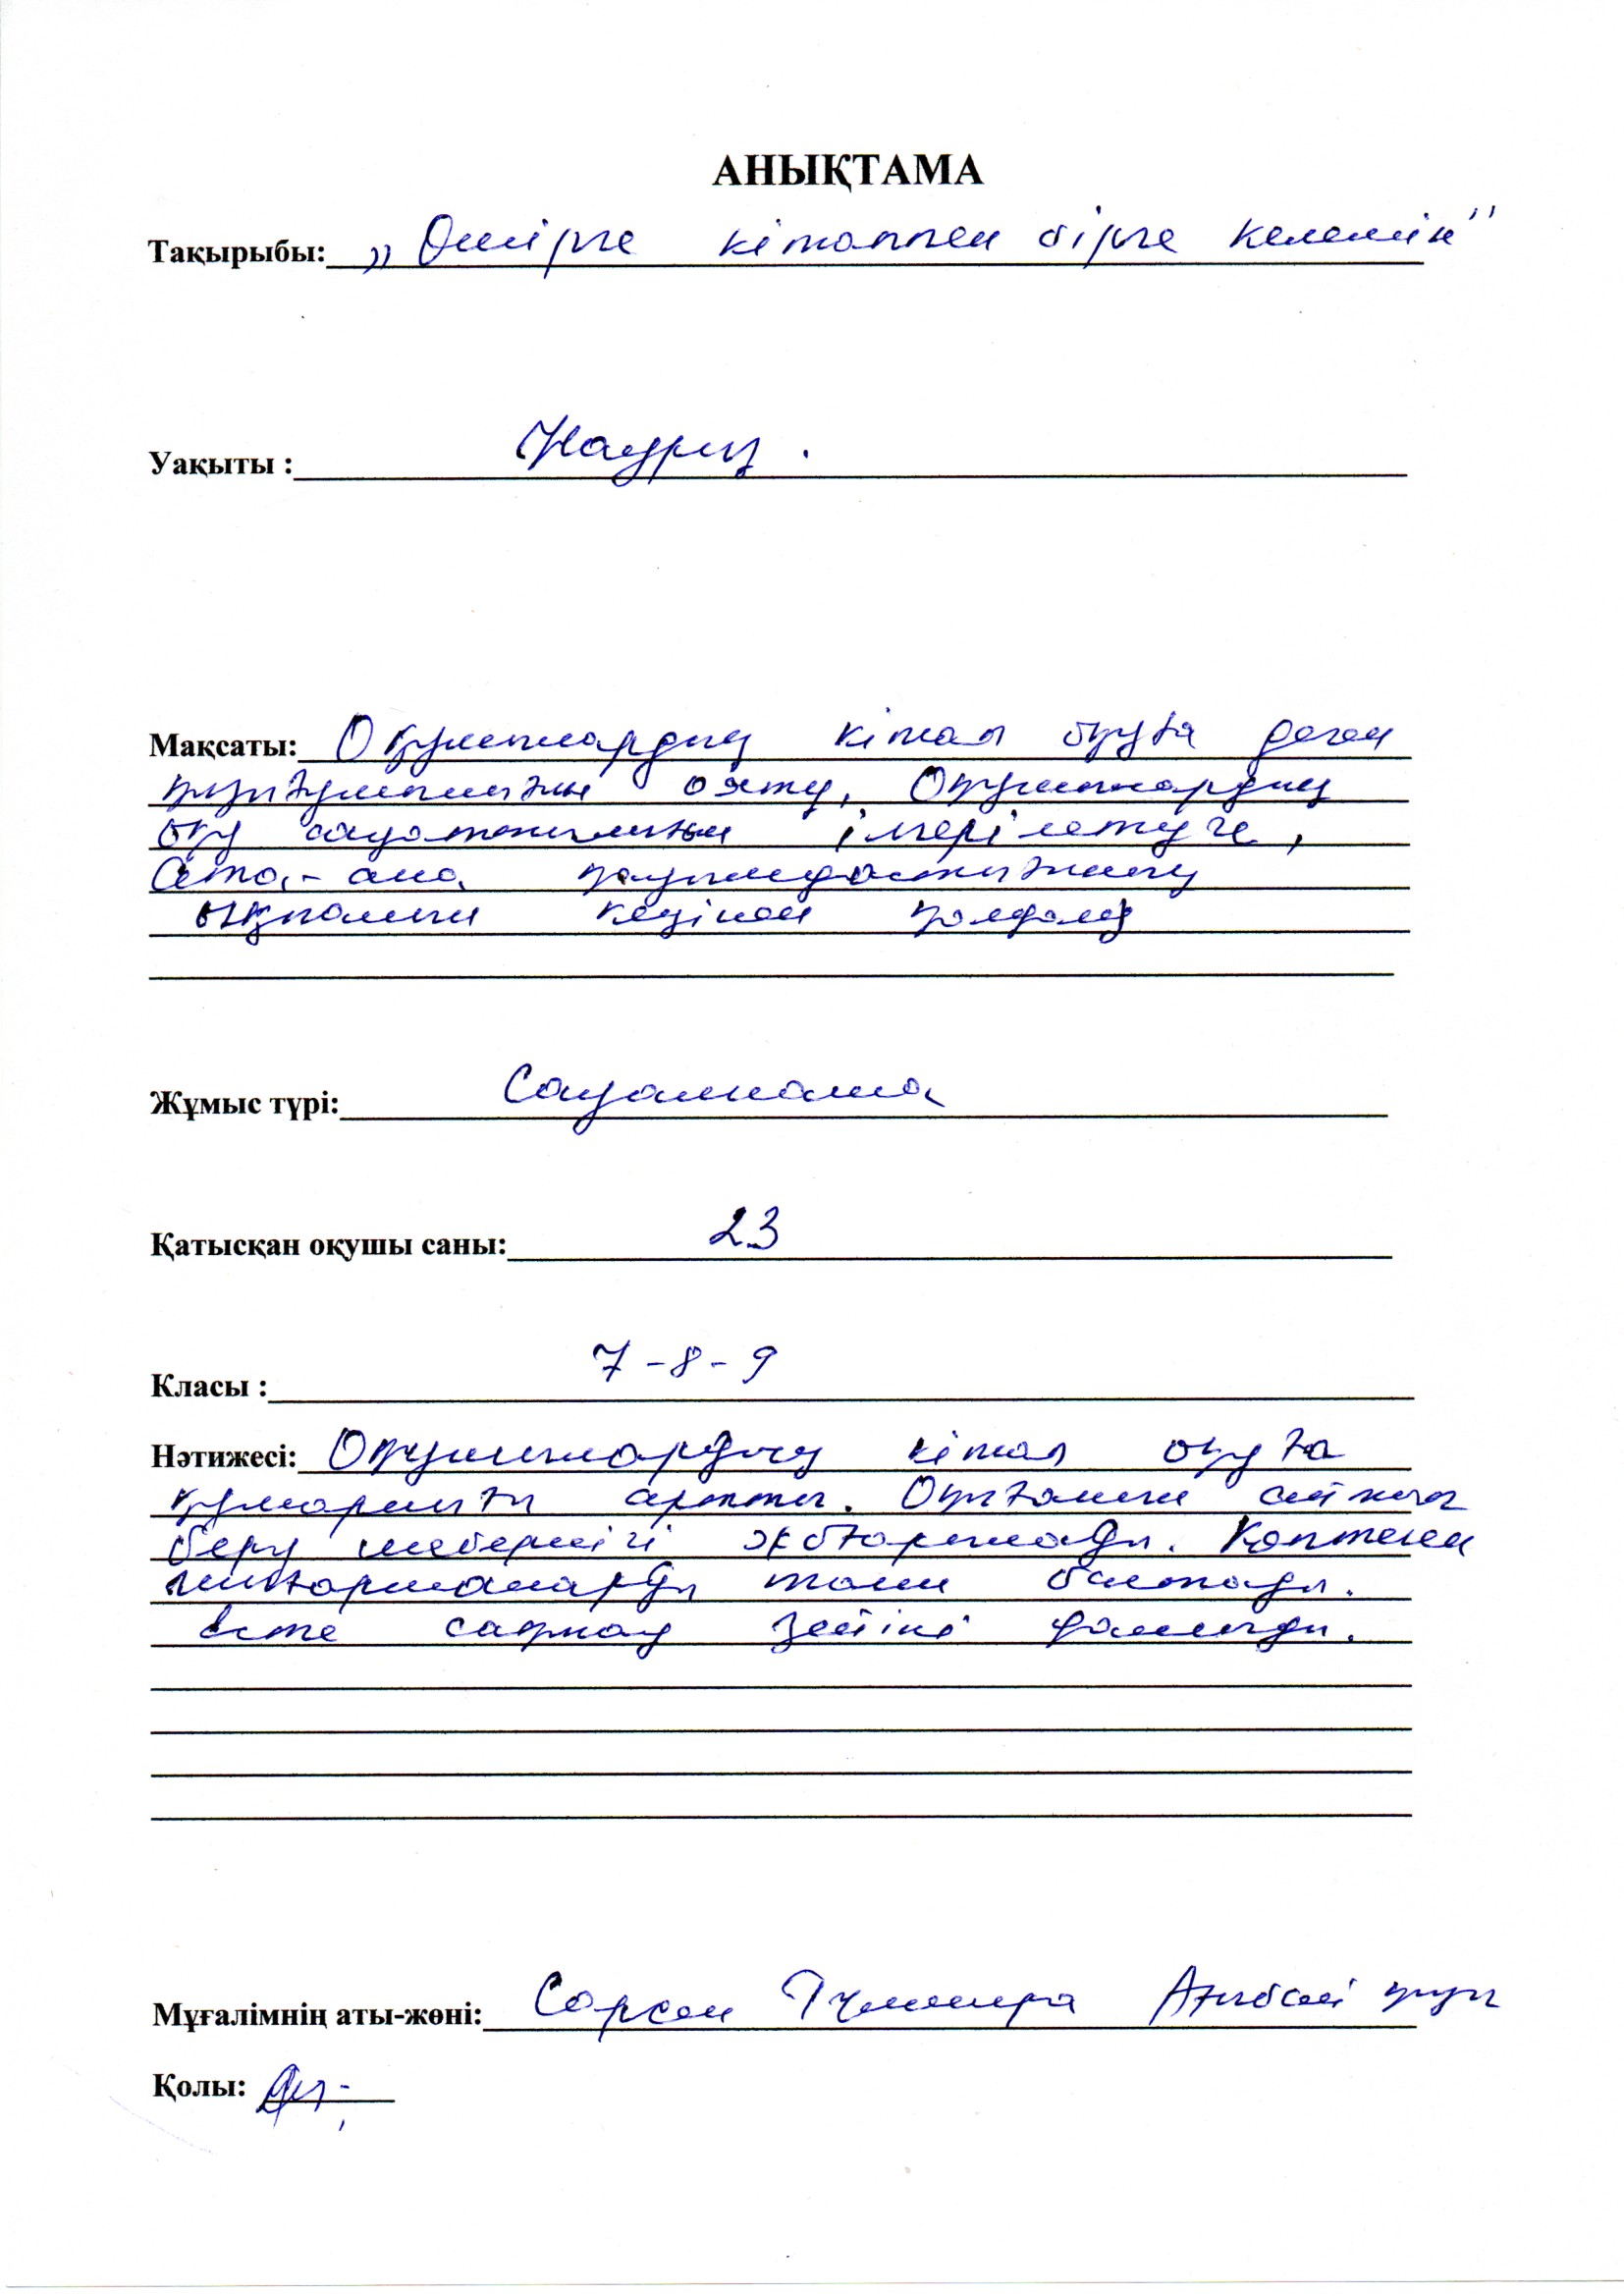 АНЫҚТАМА
Тақырыбы: „Өмірге кітаппен бірге келемін"
Уақыты : Наурыз.
Мақсаты: Оқушылардың кітап оқуға деген
қызығушылығын ояту, Оқушылардың
оқу сауаттылығын ілгерілетуге,
Ата-ана қауымдастығының
ықпалын кеңінен қолдану
Жұмыс түрі: Сауалнама
Қатысқан оқушы саны: 23
Класы : 7-8-9
Нәтижесі: Оқушылардың кітап оқуға
құмарлығы артты. Оқығанын айтып
беру шеберлігі жоғарылады. Көптеген
шығармаларды танып білді.
Есте сақтау зейіні дамыды.
Мұғалімнің аты-жөні: Сәрсен Гүлмира қызы
Қолы: